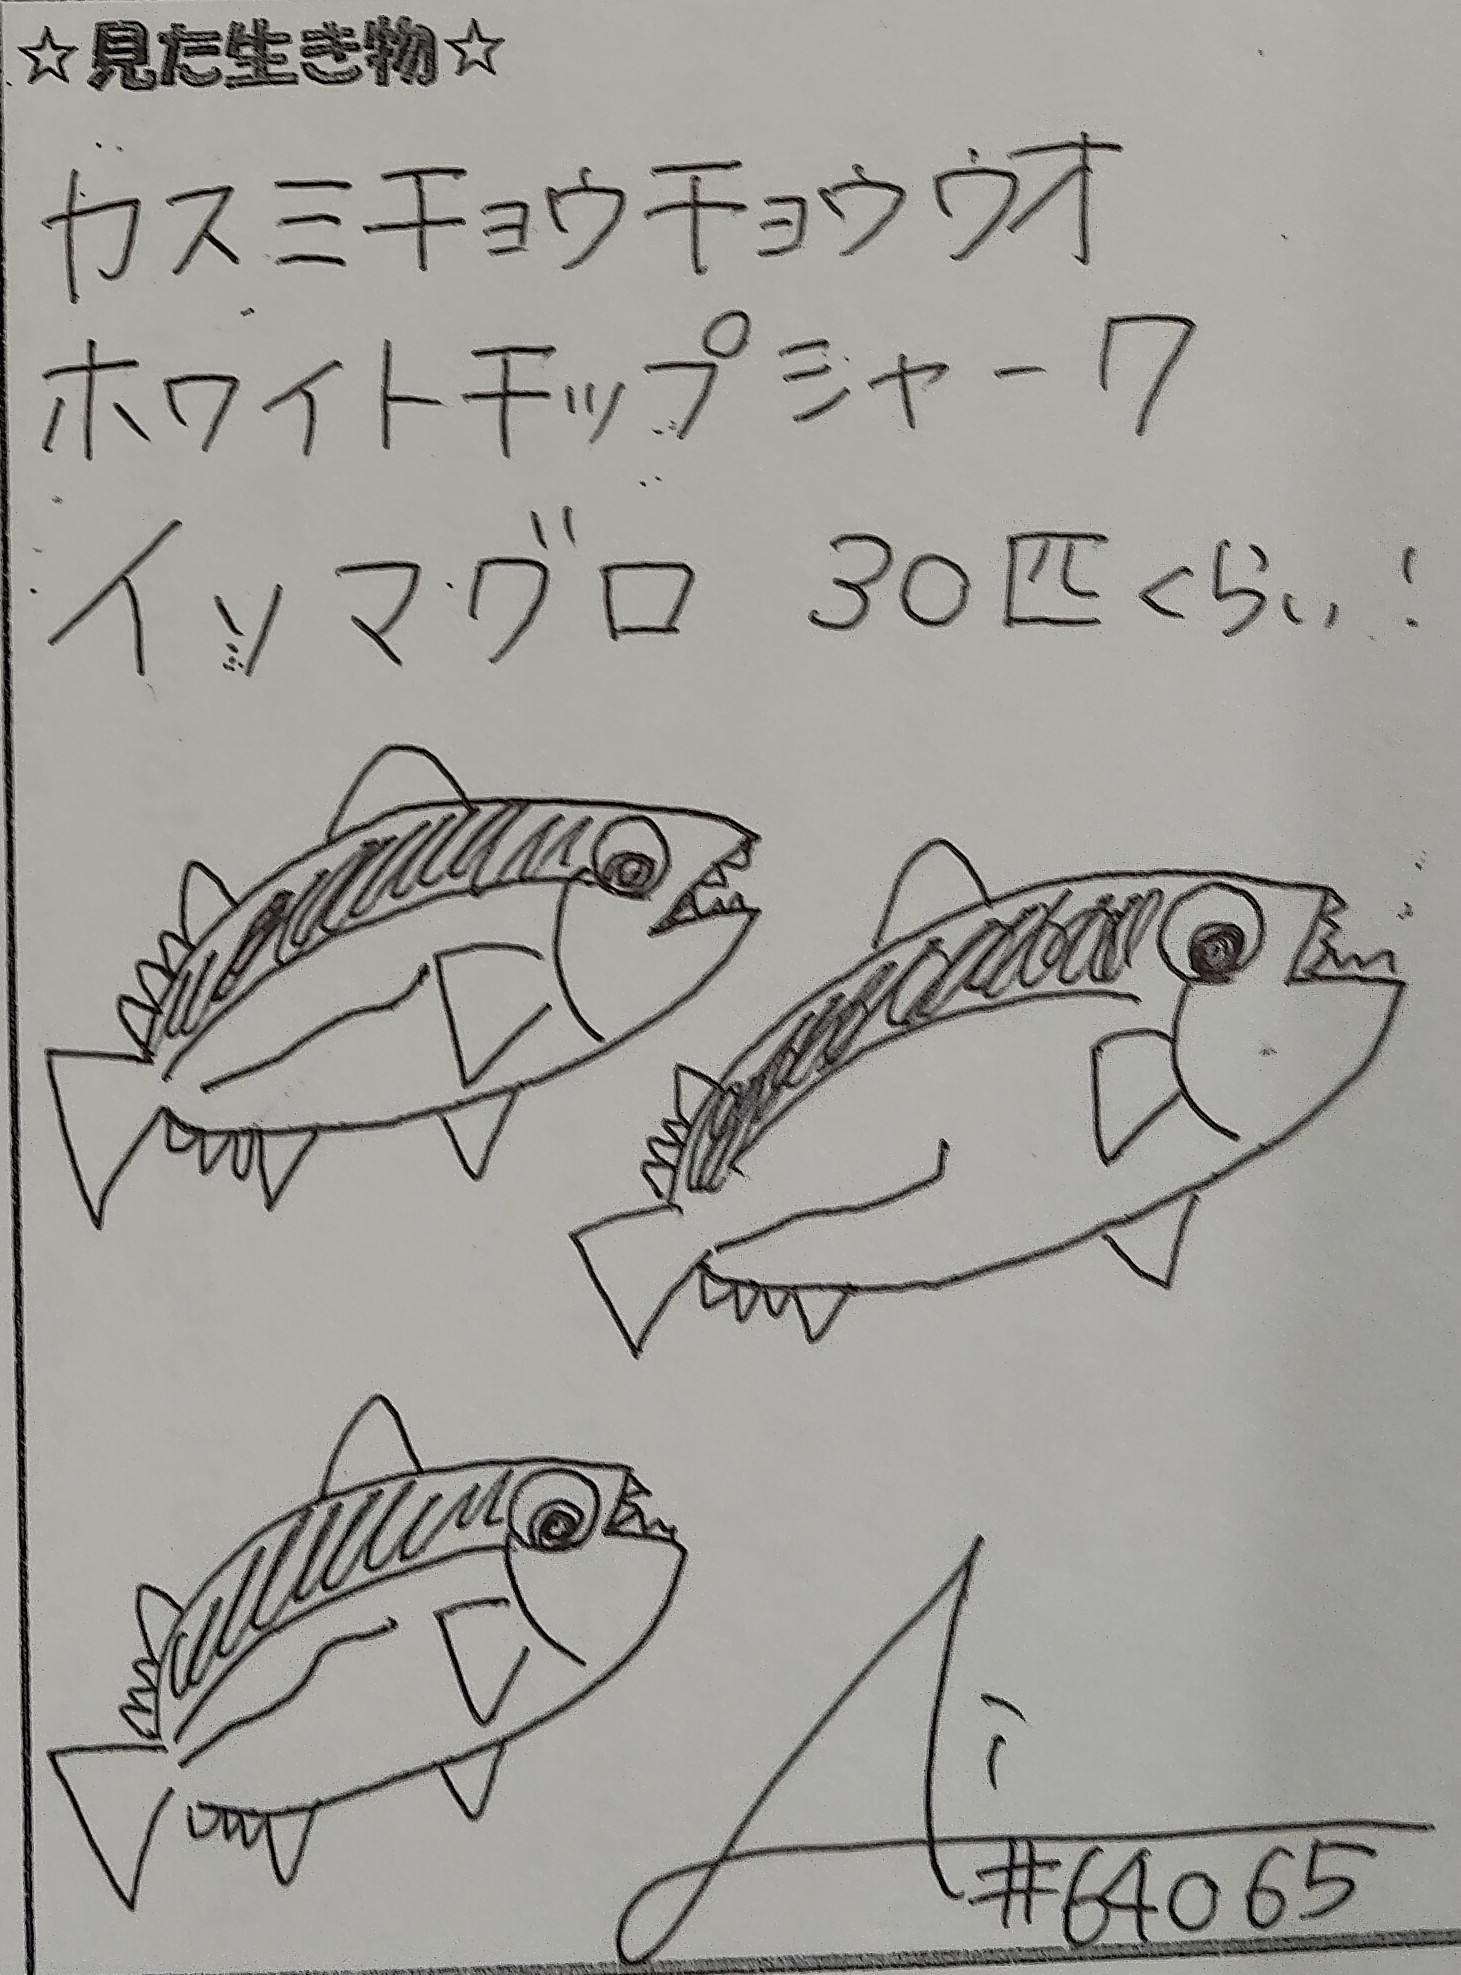 ☆見た生き物☆
カスミチョウチョウウオ
ホワイトチップシャーク
イソマグロ 30匹くらい!
Ai
#64065